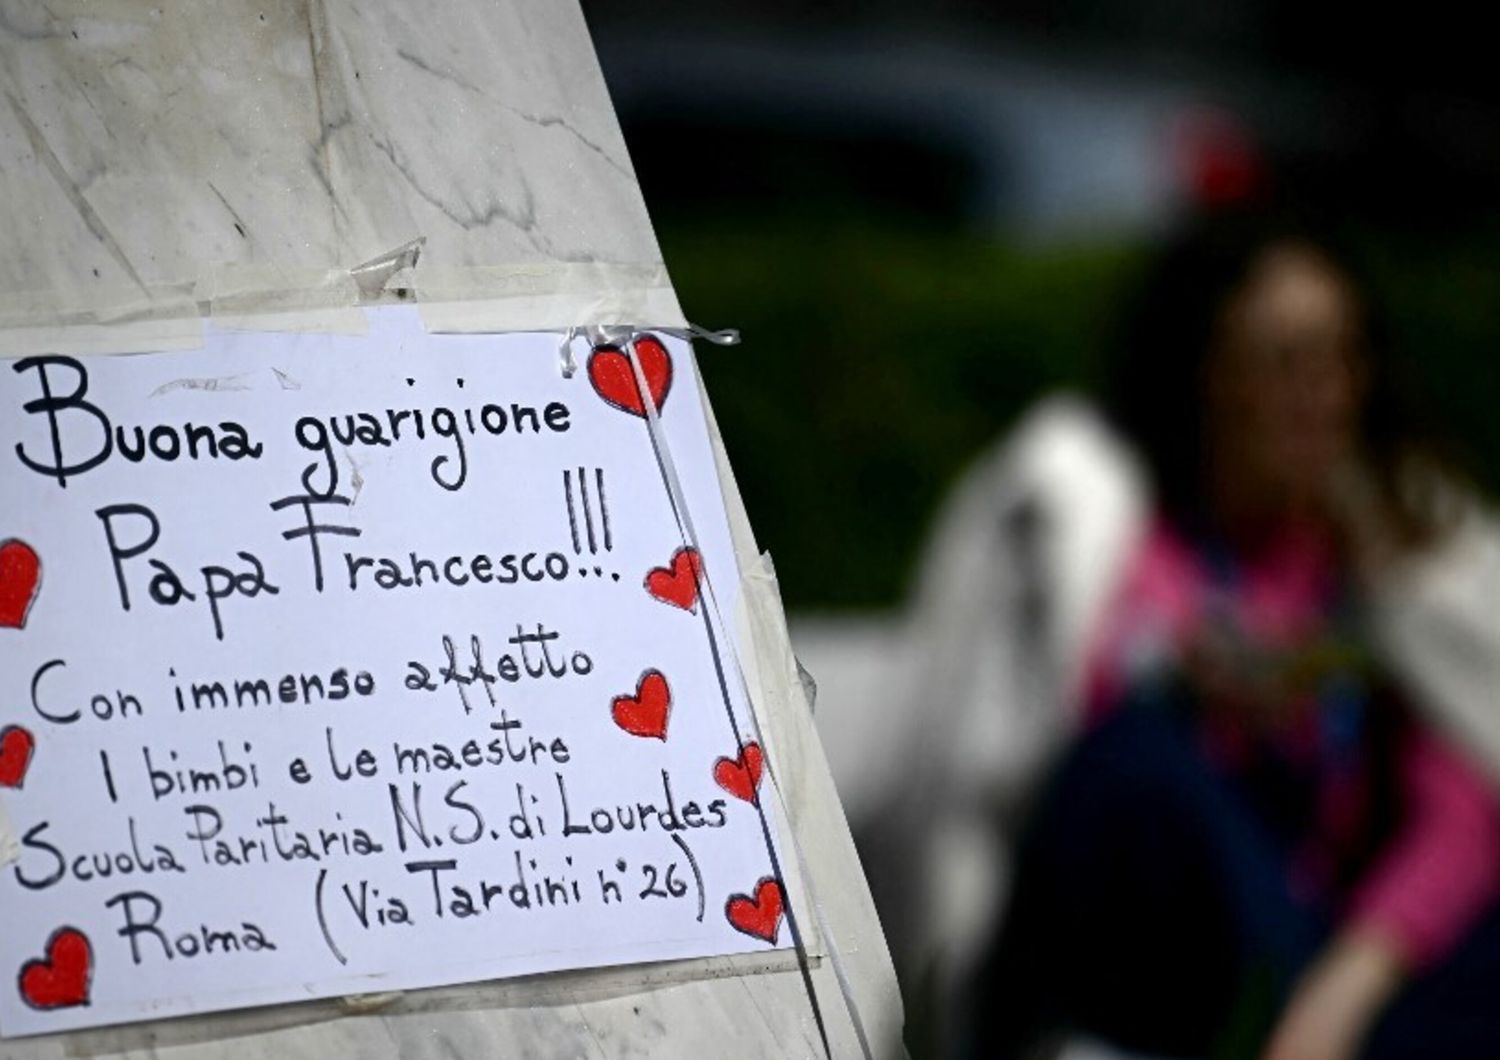 Buona guarigione
Papa Francesco!!!
Con immenso affetto
I bimbi e le maestre
Scuola Paritaria N.S. di Lourdes
Roma (Via Tardini n° 26)